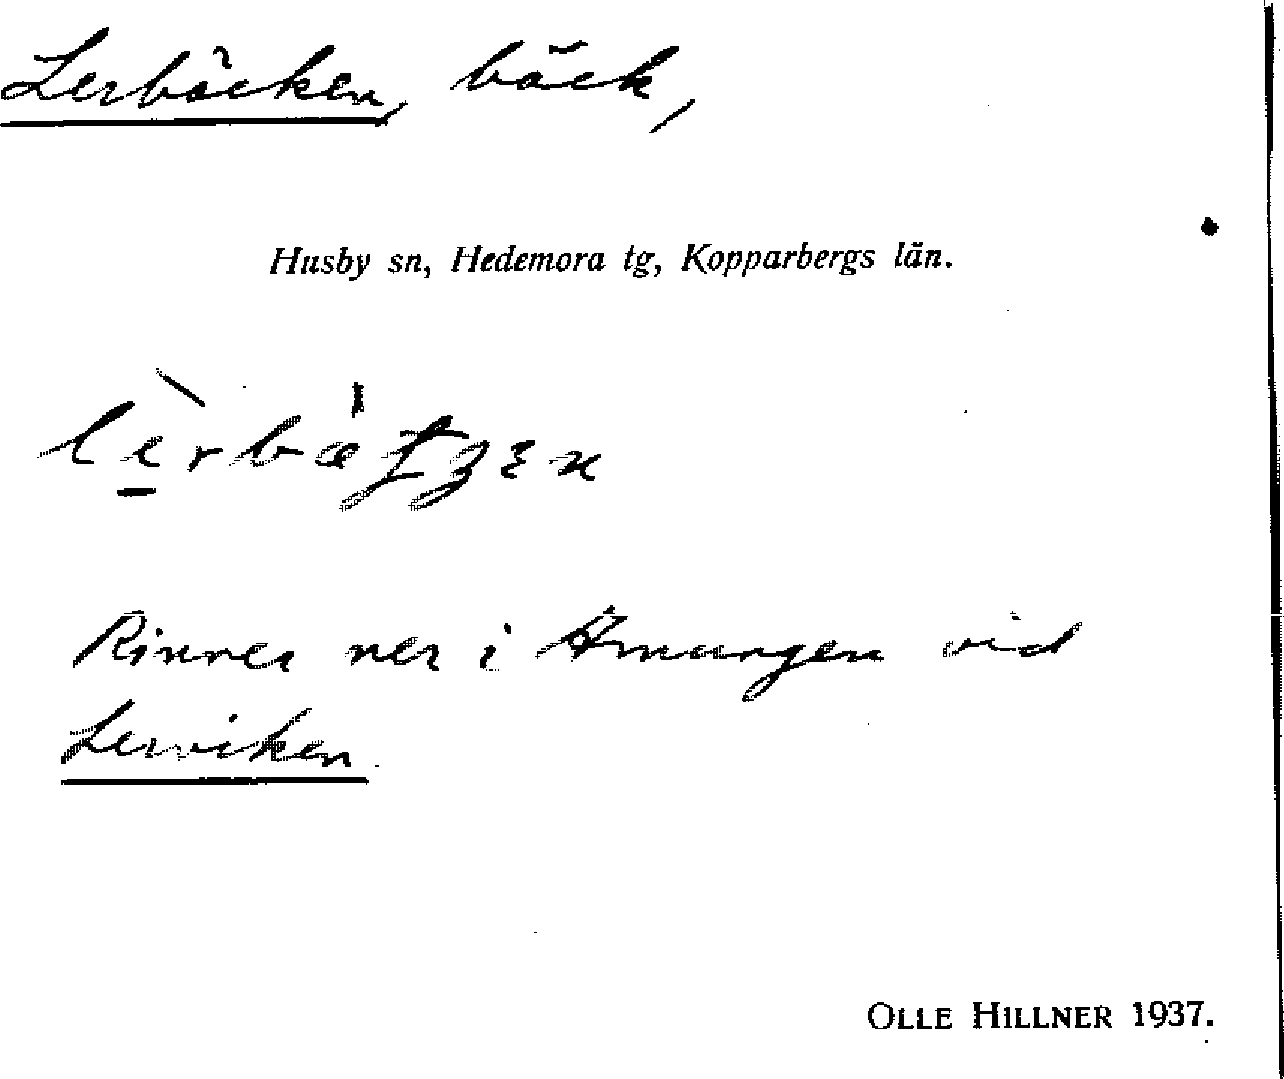 Lerbäcken, bäck,
Husby sn, Hedemora tg, Kopparbergs län.
Rinner ner i Amungen vid
Lerviken
OLLE HILLNER 1937.